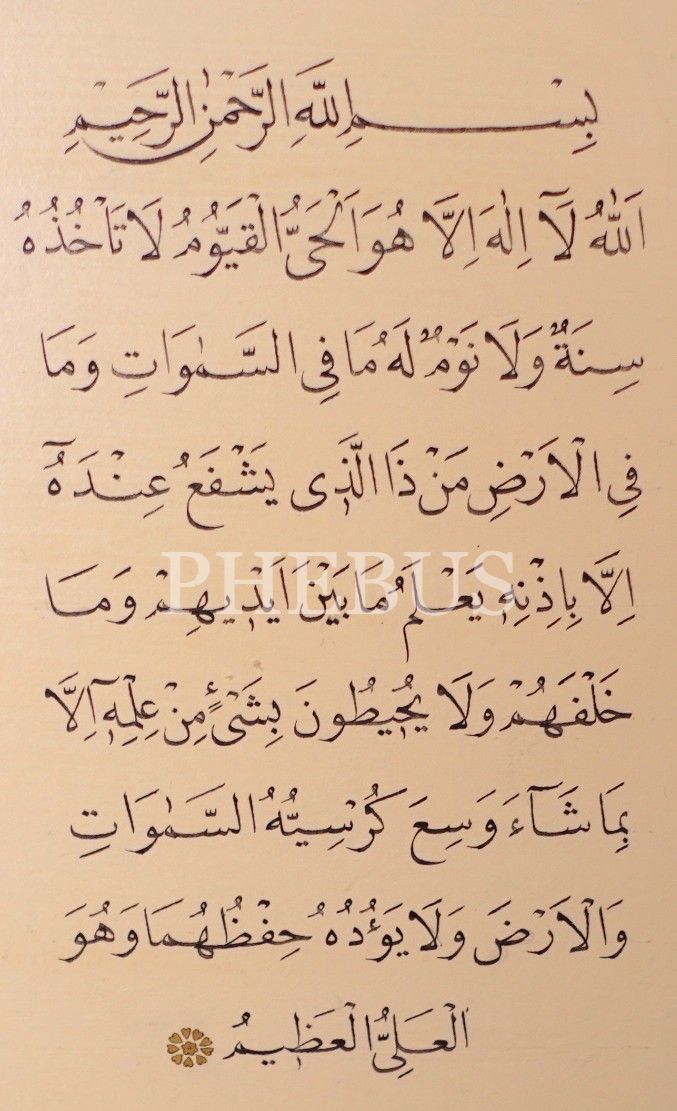 بِسْمِ اللّٰهِ الرَّحْمٰنِ الرَّحِيمِ
اَللّٰهُ لَآ اِلٰهَ اِلَّا هُوَ اَلْحَيُّ الْقَيُّومُ لَا تَأْخُذُهُ
سِنَةٌ وَلَا نَوْمٌ لَهُ مَا فِي السَّمٰوَاتِ وَمَا
فِي الْاَرْضِ مَنْ ذَا الَّذٖى يَشْفَعُ عِنْدَهُٓ
اِلَّا بِاِذْنِهٖ يَعْلَمُ مَا بَيْنَ اَيْدٖيهِمْ وَمَا
PHEBUS
خَلْفَهُمْ وَلَا يُحٖيطُونَ بِشَىْءٍ مِنْ عِلْمِهٖٓ اِلَّا
بِمَا شَآءَ وَسِعَ كُرْسِيُّهُ السَّمٰوَاتِ
وَالْاَرْضَ وَلَا يَؤُدُهُ حِفْظُهُمَا وَهُوَ
الْعَلِىُّ الْعَظٖيمُ